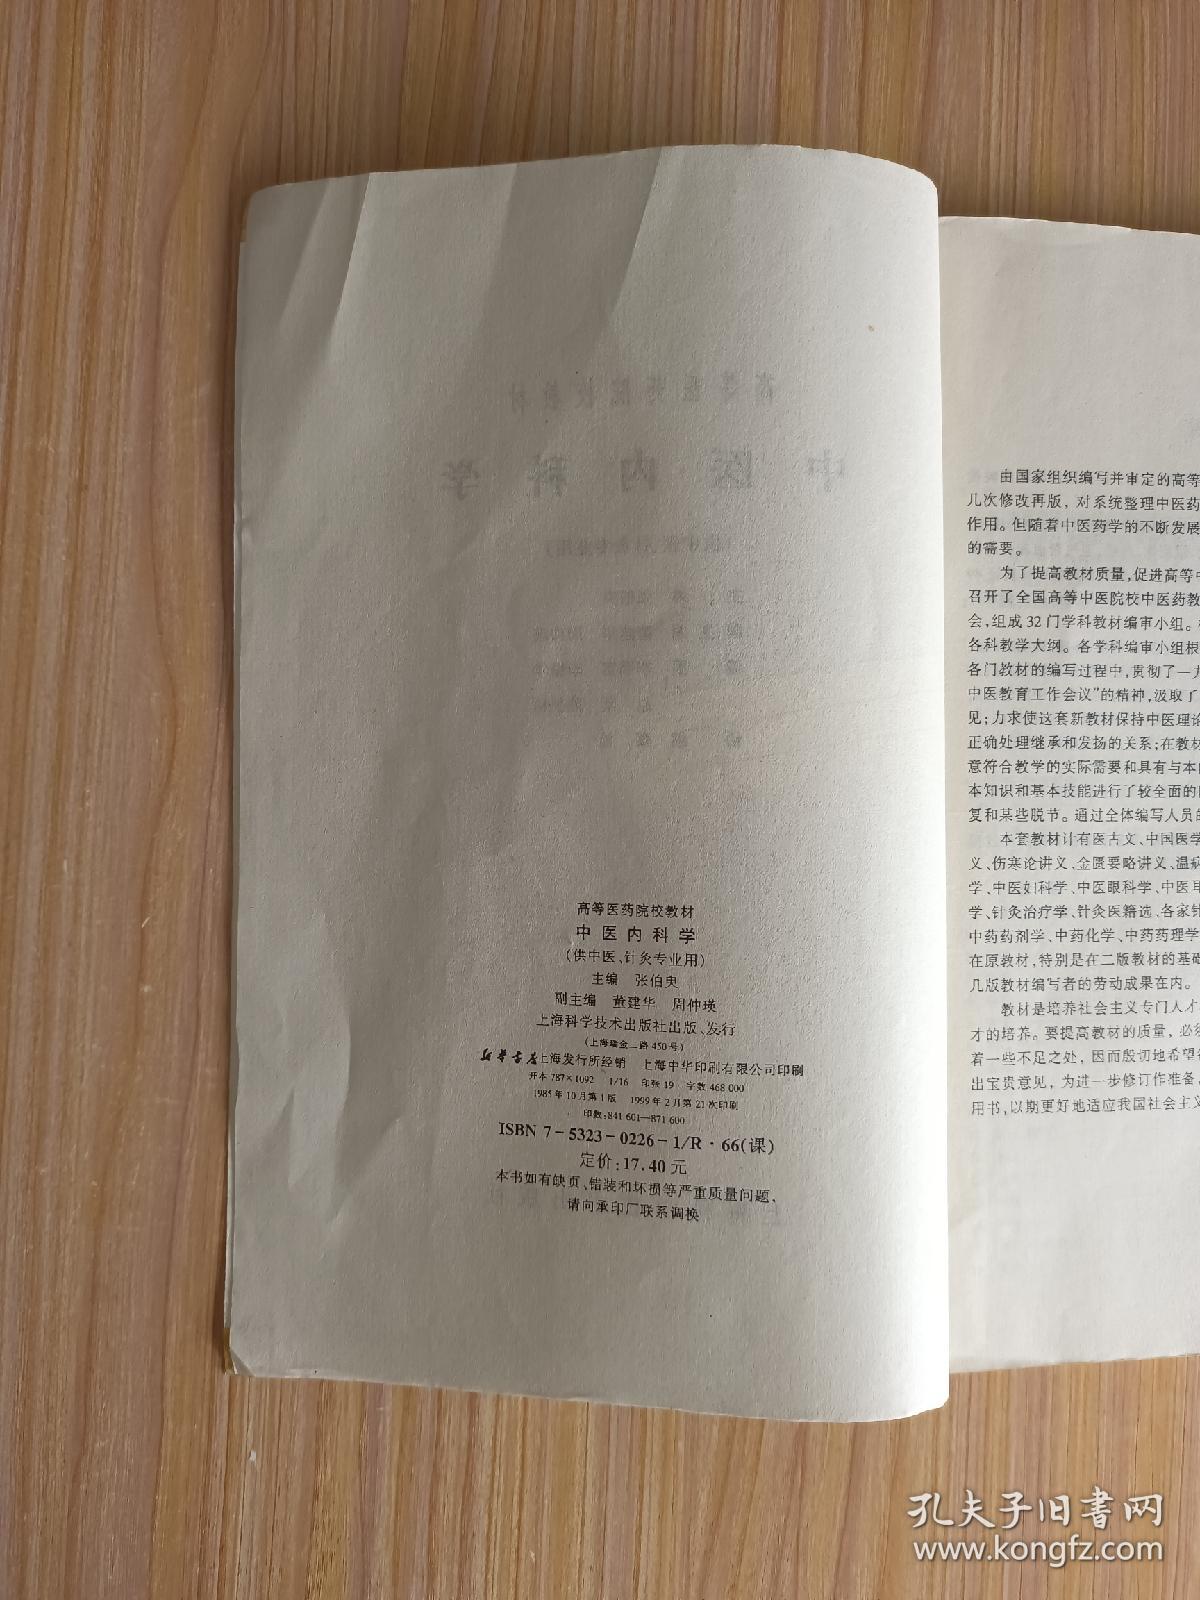 高等医药院校教材
中医内科学
(供中医、针灸专业用)
主编 张伯臾
副主编 董建华 周仲瑛
上海科学技术出版社出版、发行
(上海瑞金二路450号)
新华书店上海发行所经销 上海中华印刷有限公司印刷
开本787×1092 1/16 印张19 字数468 000
1985年10月第1版 1999年2月第21次印刷
印数:841 601—871 600
ISBN 7-5323-0226-1/R·66(课)
定价:17.40元
本书如有缺页、错装和坏损等严重质量问题,
请向承印厂联系调换
由国家组织编写并审定的高等
几次修改再版,对系统整理中医药
作用。但随着中医药学的不断发展
的需要。
为了提高教材质量,促进高等中
召开了全国高等中医院校中医药教
会,组成32门学科教材编审小组。
各科教学大纲。各学科编审小组根
各门教材的编写过程中,贯彻了一九
中医教育工作会议”的精神,汲取了
见;力求使这套新教材保持中医理论
正确处理继承和发扬的关系;在教材
意符合教学的实际需要和具有与本
本知识和基本技能进行了较全面的
复和某些脱节。通过全体编写人员的
本套教材计有医古文、中国医学
义、伤寒论讲义、金匮要略讲义、温病
学、中医妇科学、中医眼科学、中医耳
学、针灸治疗学、针灸医籍选、各家针
中药药剂学、中药化学、中药药理学
在原教材,特别是在二版教材的基础
几版教材编写者的劳动成果在内。
教材是培养社会主义专门人才
才的培养。要提高教材的质量,必须
着一些不足之处,因而殷切地希望
出宝贵意见,为进一步修订作准备
用书,以期更好地适应我国社会主义
孔夫子旧书网
www.kongfz.com